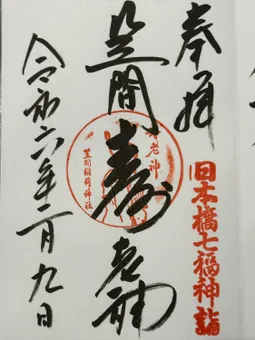 奉拝
旧本橋七福神詣
笠間
寿老神
寿老神
笠間稲荷神社
令和六年二月九日